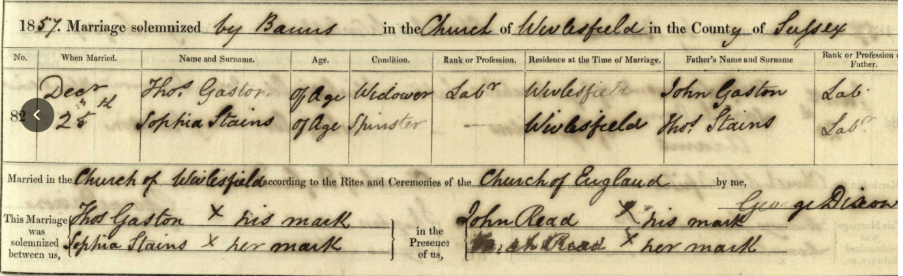 1857. Marriage solemnized by Banns in the Church of Wivlesfield in the County of Sussex
No. When Married. Name and Surname. Age. Condition. Rank or Profession. Residence at the Time of Marriage. Father's Name and Surname Rank or Profession of Father.
82 Decr 25th Thos Gaston of Age Widower Labr Wivlesfield John Gaston Labr
Sophia Stains of Age Spinster — Wivlesfield Thos Stains Labr
Married in the Church of Wivlesfield according to the Rites and Ceremonies of the Church of England by me,
George Dixon
This Marriage was solemnized between us, Thos Gaston X his mark in the Presence of us, John Read X his mark
Sophia Stains X her mark Read X her mark